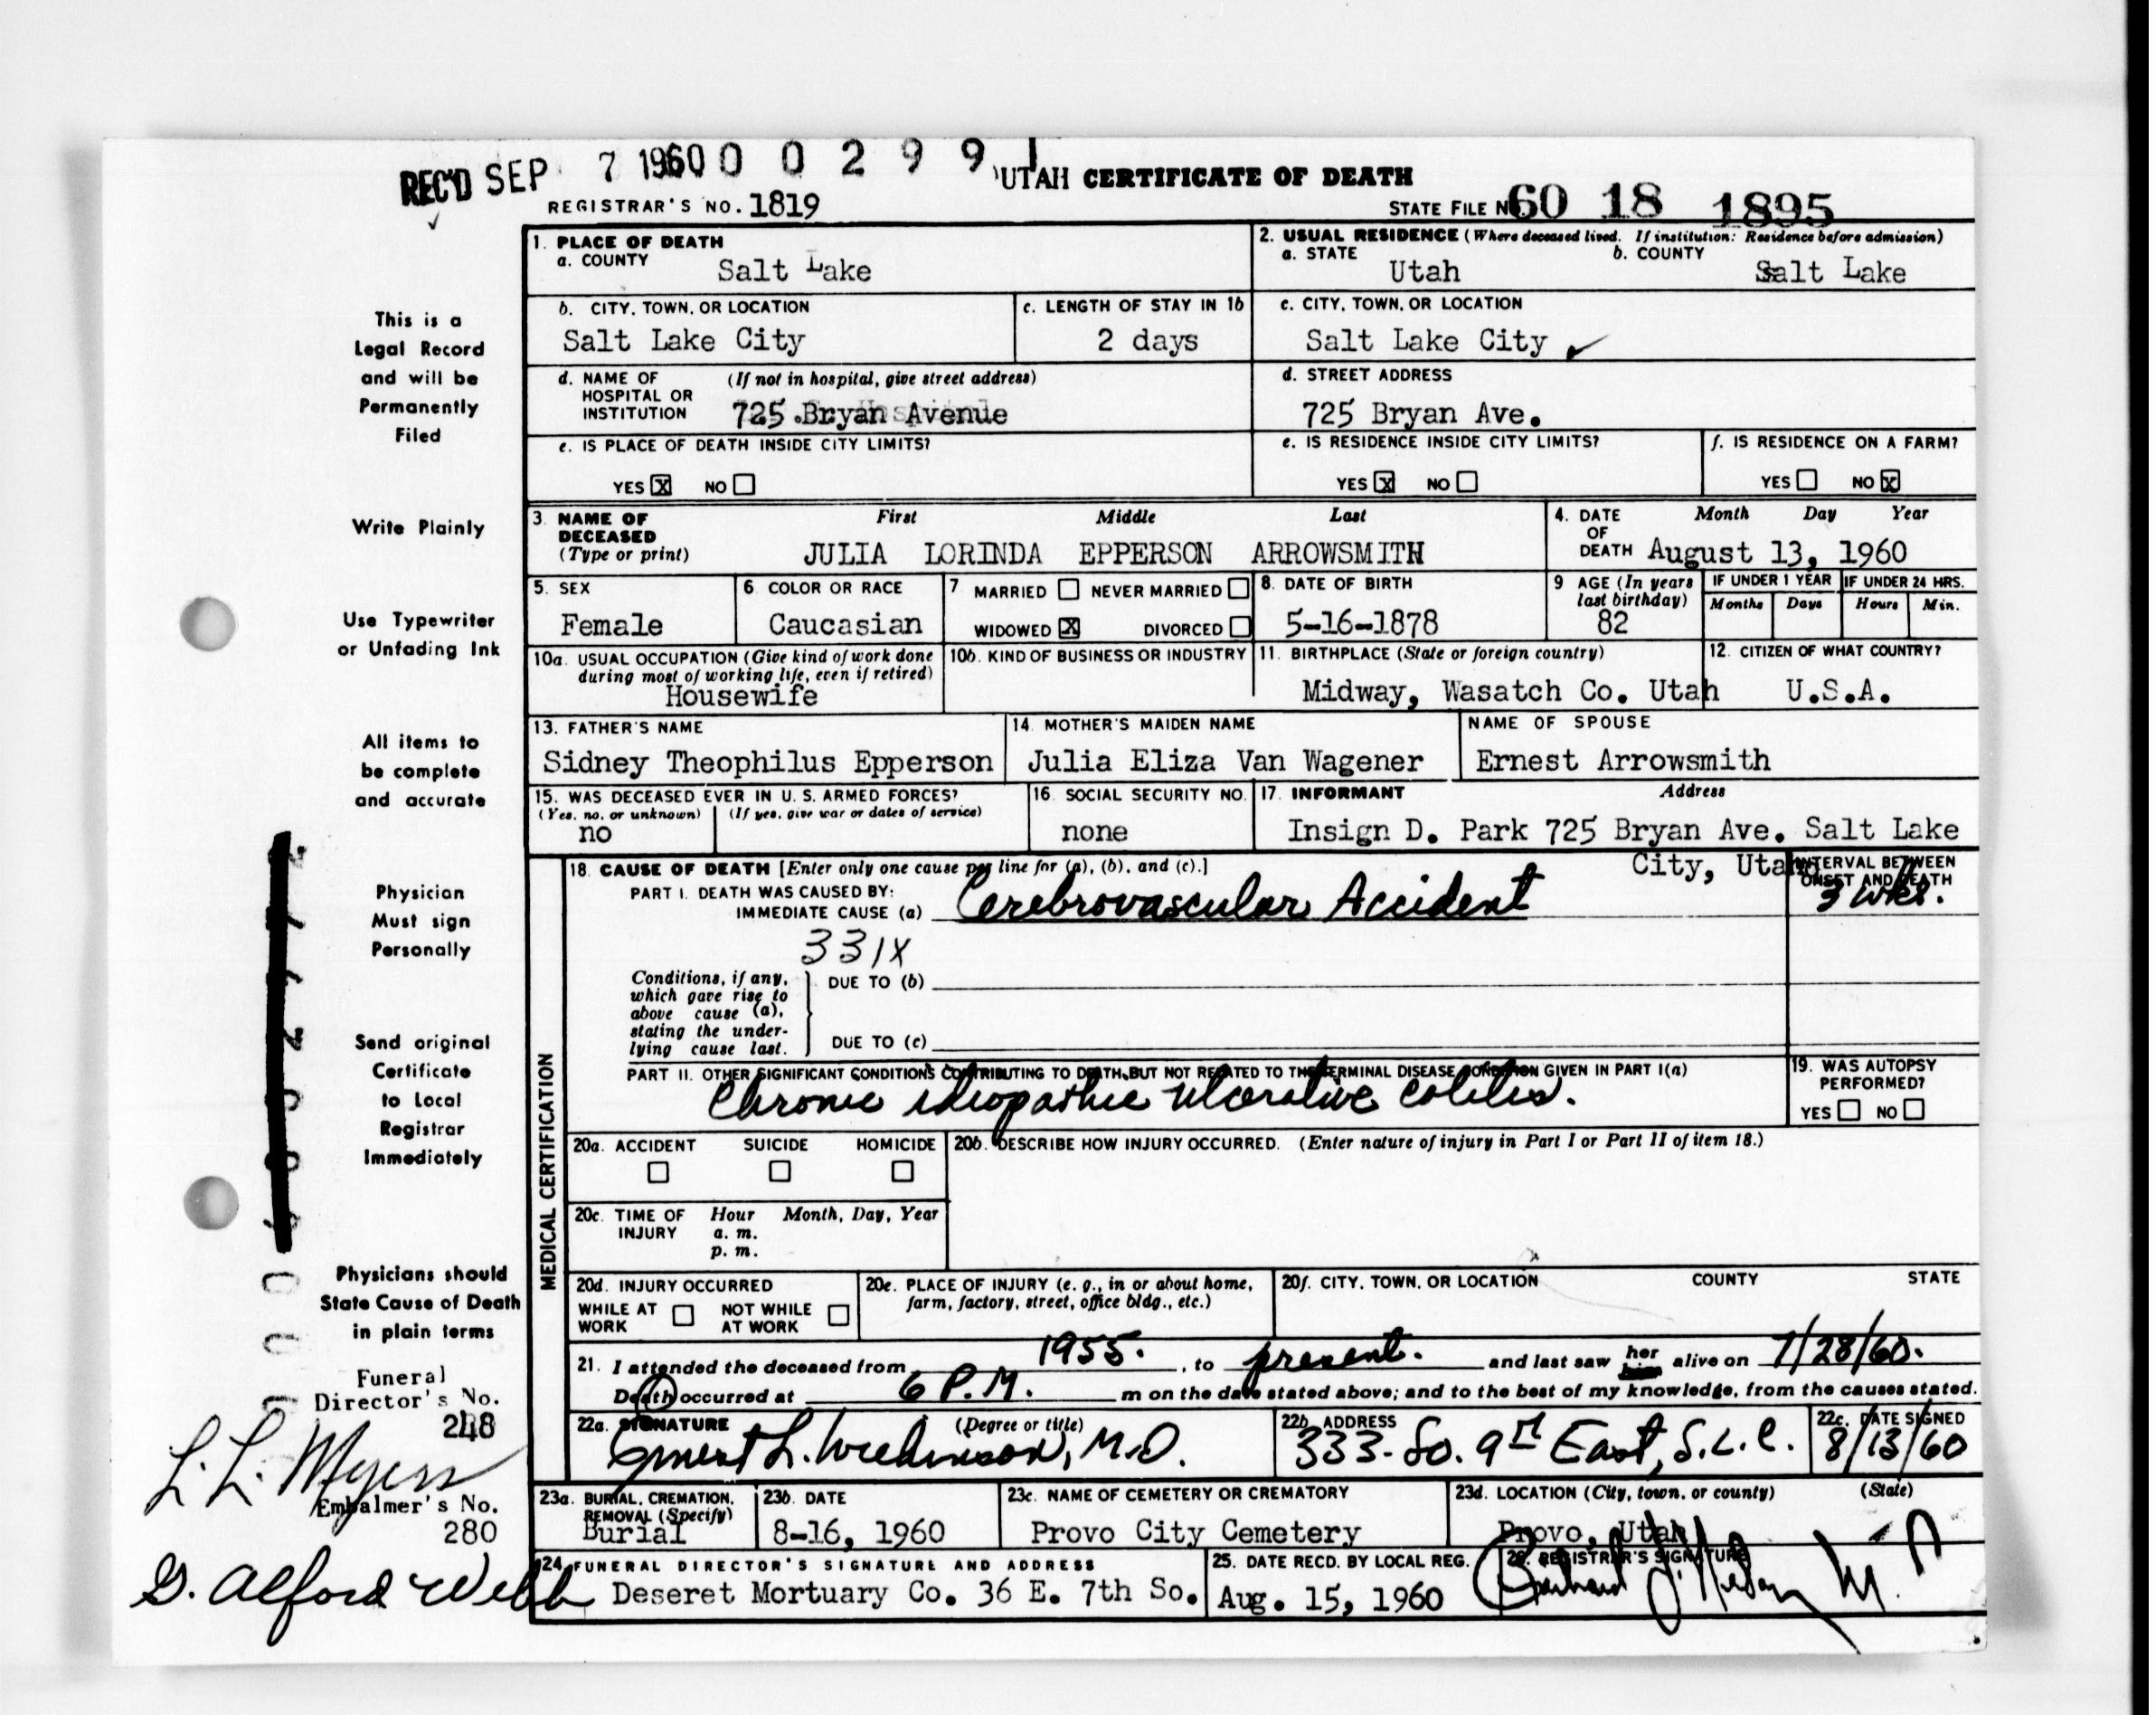 REC'D SEP 7 1960 0 0 2 9 9 1
UTAH CERTIFICATE OF DEATH
REGISTRAR'S NO. 1819
STATE FILE NO. 60 18 1895
1. PLACE OF DEATH
a. COUNTY Salt Lake
2. USUAL RESIDENCE (Where deceased lived. If institution: Residence before admission)
a. STATE Utah b. COUNTY Salt Lake
b. CITY, TOWN, OR LOCATION
Salt Lake City
c. LENGTH OF STAY IN 1b
2 days
c. CITY, TOWN, OR LOCATION
Salt Lake City
d. NAME OF HOSPITAL OR INSTITUTION (If not in hospital, give street address)
725 Bryan Avenue
d. STREET ADDRESS
725 Bryan Ave.
e. IS PLACE OF DEATH INSIDE CITY LIMITS?
YES X NO
e. IS RESIDENCE INSIDE CITY LIMITS?
YES X NO
f. IS RESIDENCE ON A FARM?
YES NO X
3. NAME OF DECEASED (Type or print)
First Middle Last
JULIA LORINDA EPPERSON ARROWSMITH
4. DATE OF DEATH Month Day Year
August 13, 1960
5. SEX
Female
6. COLOR OR RACE
Caucasian
7 MARRIED NEVER MARRIED
WIDOWED X DIVORCED
8. DATE OF BIRTH
5-16-1878
9 AGE (In years last birthday)
82
IF UNDER 1 YEAR
Months Days
IF UNDER 24 HRS.
Hours Min.
10a. USUAL OCCUPATION (Give kind of work done during most of working life, even if retired)
Housewife
10b. KIND OF BUSINESS OR INDUSTRY
11. BIRTHPLACE (State or foreign country)
Midway, Wasatch Co. Utah
12. CITIZEN OF WHAT COUNTRY?
U.S.A.
13. FATHER'S NAME
Sidney Theophilus Epperson
14. MOTHER'S MAIDEN NAME
Julia Eliza Van Wagener
NAME OF SPOUSE
Ernest Arrowsmith
15. WAS DECEASED EVER IN U. S. ARMED FORCES?
(Yes, no, or unknown) (If yes, give war or dates of service)
no
16. SOCIAL SECURITY NO.
none
17. INFORMANT Address
Insign D. Park 725 Bryan Ave. Salt Lake
City, Utah
18. CAUSE OF DEATH [Enter only one cause per line for (a), (b), and (c).]
INTERVAL BETWEEN ONSET AND DEATH
PART I. DEATH WAS CAUSED BY:
IMMEDIATE CAUSE (a) Cerebrovascular Accident
3 wks.
331X
Conditions, if any, which gave rise to above cause (a), stating the underlying cause last.
DUE TO (b)
DUE TO (c)
PART II. OTHER SIGNIFICANT CONDITIONS CONTRIBUTING TO DEATH BUT NOT RELATED TO THE TERMINAL DISEASE CONDITION GIVEN IN PART I(a)
Chronic idiopathic ulcerative colitis.
19. WAS AUTOPSY PERFORMED?
YES NO
MEDICAL CERTIFICATION
20a. ACCIDENT SUICIDE HOMICIDE
20b. DESCRIBE HOW INJURY OCCURRED. (Enter nature of injury in Part I or Part II of item 18.)
20c. TIME OF INJURY Hour Month, Day, Year
a. m.
p. m.
20d. INJURY OCCURRED
WHILE AT WORK NOT WHILE AT WORK
20e. PLACE OF INJURY (e. g., in or about home, farm, factory, street, office bldg., etc.)
20f. CITY, TOWN, OR LOCATION COUNTY STATE
21. I attended the deceased from 1955. , to present. and last saw her him alive on 7/28/60.
Death occurred at 6 P.M. m on the date stated above; and to the best of my knowledge, from the causes stated.
22a. SIGNATURE (Degree or title)
Ernest L. Wilkinson, M.D.
22b. ADDRESS
333 - So. 9th East, S.L.C.
22c. DATE SIGNED
8/13/60
23a. BURIAL, CREMATION, REMOVAL (Specify)
Burial
23b. DATE
8-16, 1960
23c. NAME OF CEMETERY OR CREMATORY
Provo City Cemetery
23d. LOCATION (City, town, or county) (State)
Provo, Utah
24. FUNERAL DIRECTOR'S SIGNATURE AND ADDRESS
Deseret Mortuary Co. 36 E. 7th So.
25. DATE RECD. BY LOCAL REG.
Aug. 15, 1960
26. REGISTRAR'S SIGNATURE
M. D
This is a
Legal Record
and will be
Permanently
Filed
Write Plainly
Use Typewriter
or Unfading Ink
All items to
be complete
and accurate
Physician
Must sign
Personally
Send original
Certificate
to Local
Registrar
Immediately
Physicians should
State Cause of Death
in plain terms
Funeral
Director's No.
248
L. L. Myers
Embalmer's No.
280
G. Alford Webb